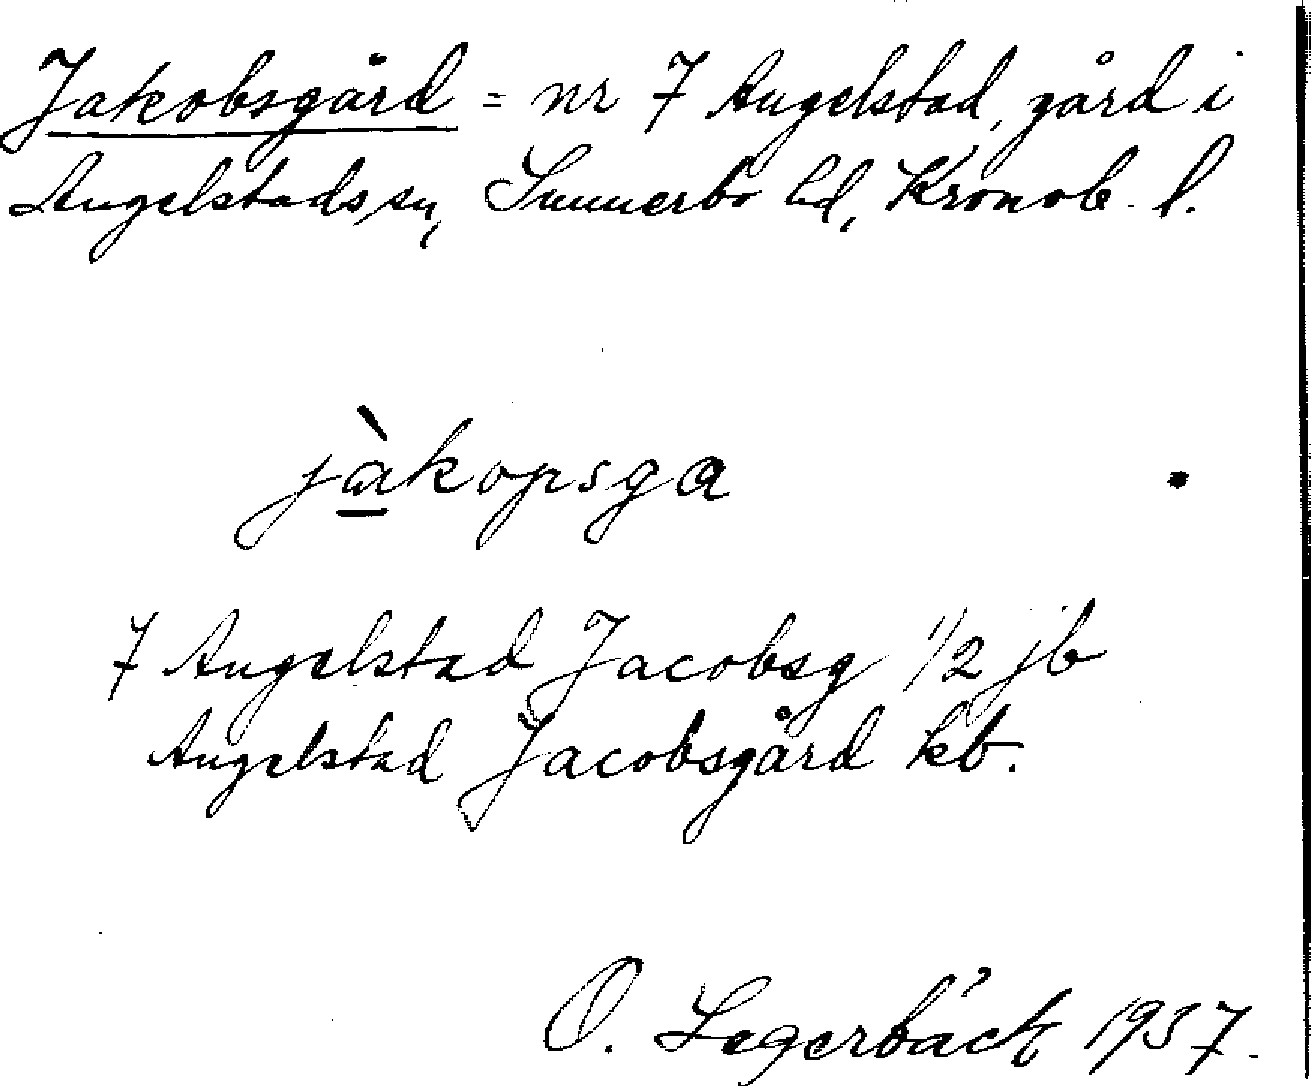 Jakobsgård = nr 7 Angelstad, gård i
Angelstads sn, Sunnerbo hd, Kronob. l.
jàkopsga
7 Angelstad Jacobsg 1/2 jb
Angelstad Jacobsgård kb.
O. Legerbäck 1937.